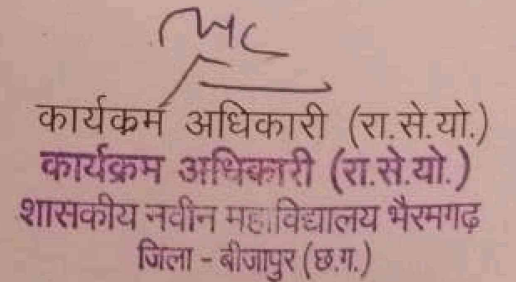 कार्यकम अधिकारी (रा.से.यो.)
कार्यक्रम अधिकारी (रा.से.यो.)
शासकीय नवीन महाविद्यालय भैरमगढ़
जिला - बीजापुर (छ.ग.)